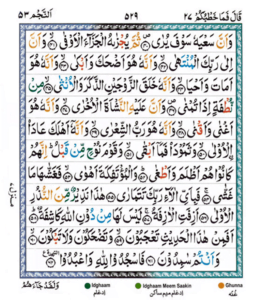 قَالَ فَمَا خَطْبُكُمْ ٢٧ ٥٢٩ اَلنَّجْم ٥٣
وَاَنَّ سَعْيَهٗ سَوْفَ يُرٰى ثُمَّ يُجْزٰىهُ الْجَزَآءَ الْاَوْفٰى وَاَنَّ
اِلٰى رَبِّكَ الْمُنْتَهٰى وَاَنَّهٗ هُوَ اَضْحَكَ وَاَبْكٰى وَاَنَّهٗ هُوَ
اَمَاتَ وَاَحْيَا وَاَنَّهٗ خَلَقَ الزَّوْجَيْنِ الذَّكَرَ وَالْاُنْثٰى مِنْ
نُّطْفَةٍ اِذَا تُمْنٰى وَاَنَّ عَلَيْهِ النَّشْاَةَ الْاُخْرٰى وَاَنَّهٗ هُوَ
اَغْنٰى وَاَقْنٰى وَاَنَّهٗ هُوَ رَبُّ الشِّعْرٰى وَاَنَّهٗ اَهْلَكَ عَادَا
الْاُوْلٰى وَثَمُوْدَا۟ فَمَآ اَبْقٰى وَقَوْمَ نُوْحٍ مِّنْ قَبْلُ اِنَّهُمْ
كَانُوْا هُمْ اَظْلَمَ وَاَطْغٰى وَالْمُؤْتَفِكَةَ اَهْوٰى فَغَشّٰىهَا مَا
غَشّٰى فَبِاَيِّ اٰلَآءِ رَبِّكَ تَتَمَارٰى هٰذَا نَذِيْرٌ مِّنَ النُّذُرِ
الْاُوْلٰى اَزِفَتِ الْاٰزِفَةُ لَيْسَ لَهَا مِنْ دُوْنِ اللّٰهِ كَاشِفَةٌ
اَفَمِنْ هٰذَا الْحَدِيْثِ تَعْجَبُوْنَ وَتَضْحَكُوْنَ وَلَا تَبْكُوْنَ
وَاَنْتُمْ سٰمِدُوْنَ فَاسْجُدُوْا لِلّٰهِ وَاعْبُدُوْا
Idghaam Idgham Meem Saakin Ghunna
ادغام ادغام میم ساکن غنہ